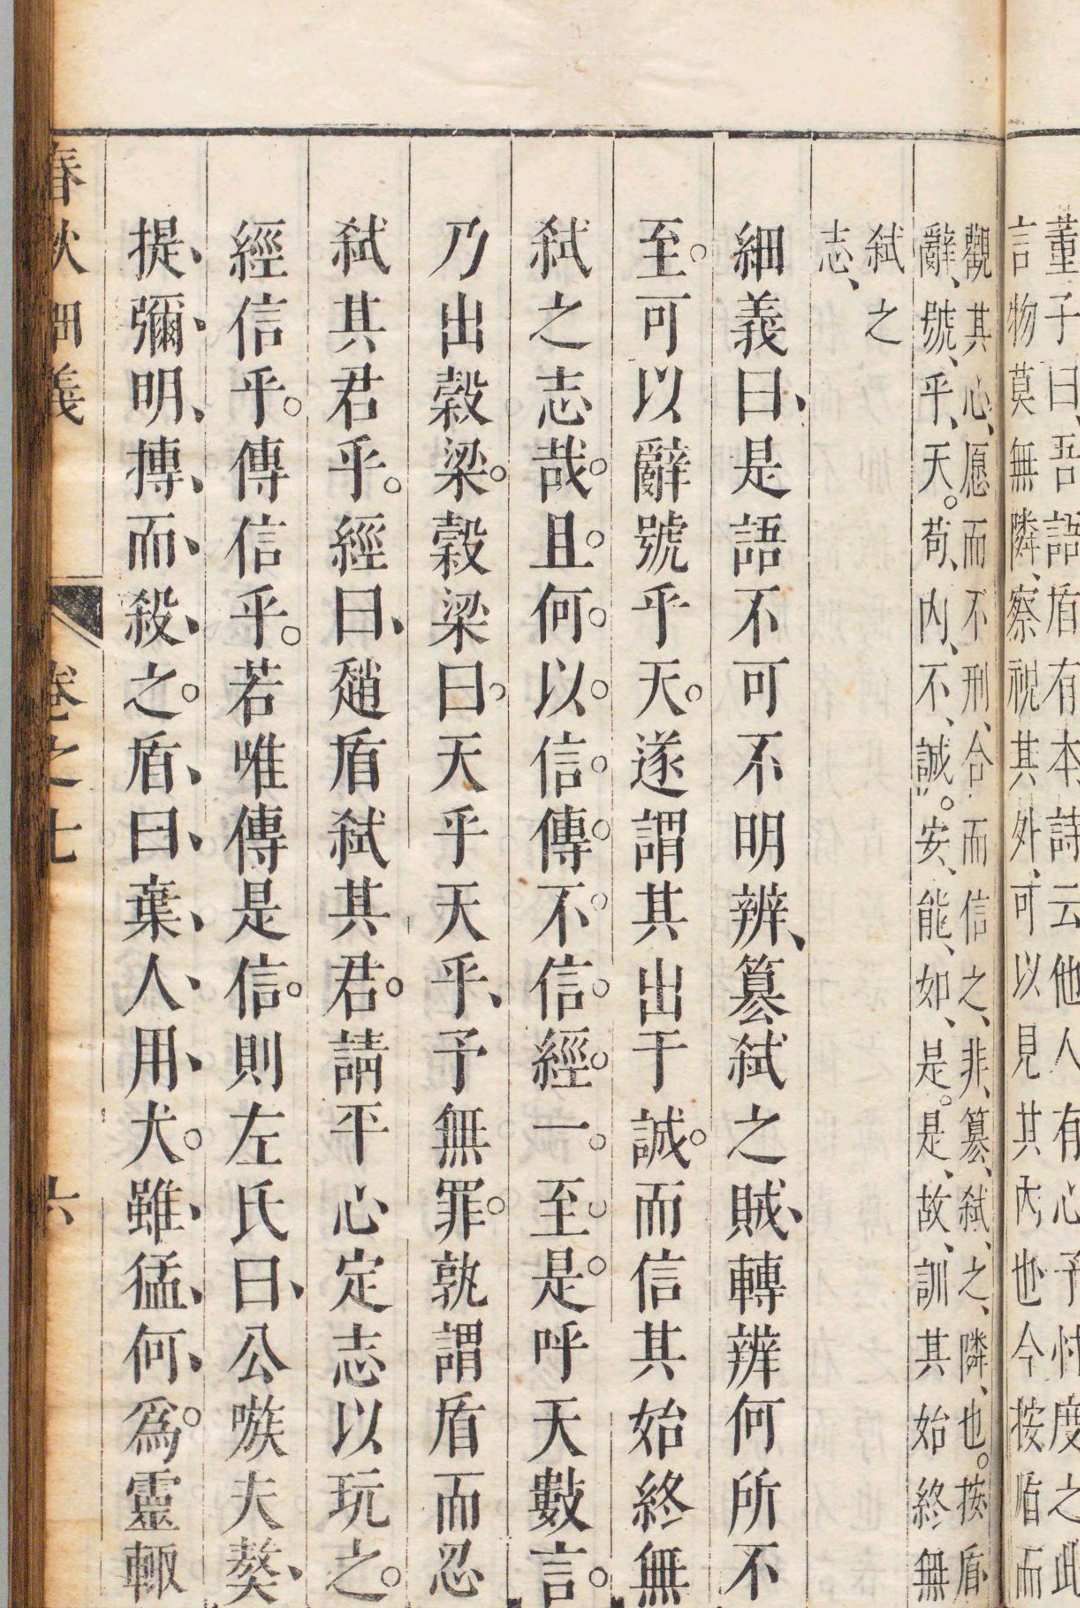 董子曰吾語盾有本詩云他人有心予忖度之此
言物莫無隣察視其外可以見其內也今按盾而
觀其心愿而不刑合而信之非篡弑之隣也按盾
辭號乎天苟內不誠安能如是是故訓其始終無
弑之
志
細義曰是語不可不明辨篡弑之賊轉辨何所不
至可以辭號乎天遂謂其出于誠而信其始終無
弑之志哉且何以信傳不信經一至是呼天數言
乃出穀梁穀梁曰天乎天乎予無罪孰謂盾而忍
弑其君乎經曰趙盾弑其君請平心定志以玩之
經信乎傳信乎若唯傳是信則左氏曰公嗾夫獒
提彌明搏而殺之盾曰棄人用犬雖猛何爲靈輙
春秋細義 卷之七 六